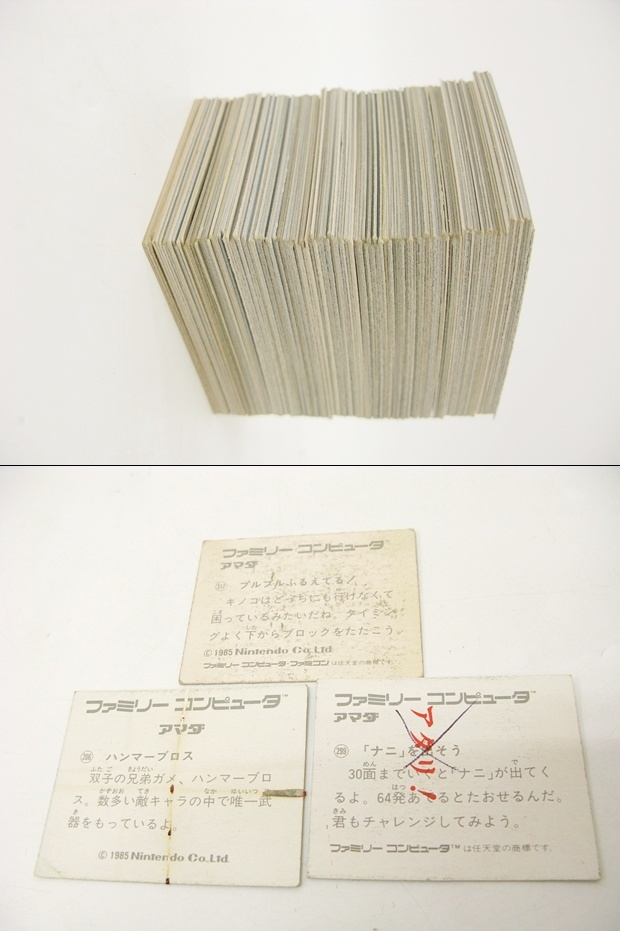 ファミリー コンピュータ™
アマダ
プルプルふるえてる!
キノコはどっちにも行けなくて
困っているみたいだね。タイミン
グよく下からブロックをたたこう。
© 1985 Nintendo Co.,Ltd.
ファミリー コンピュータ・ファミコンは任天堂の商標です。
ファミリー コンピュータ™
アマダ
ハンマーブロス
ふたご きょうだい
双子の兄弟ガメ、ハンマーブロ
かずおお てき なか ゆいいつ
ス。数多い敵キャラの中で唯一武
き
器をもっているよ。
© 1985 Nintendo Co.,Ltd.
ファミリー コンピュータ™
アマダ
アタリ!
「ナニ」を出そう
めん で
30面までいくと「ナニ」が出てく
はつ
るよ。64発あてるとたおせるんだ。
きみ
君もチャレンジしてみよう。
ファミリー コンピュータ™は任天堂の商標です。